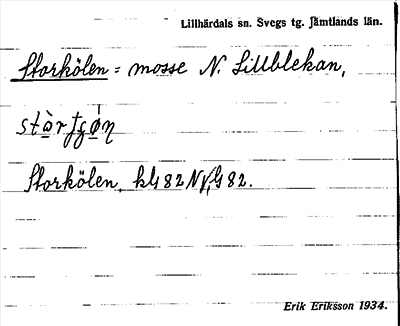 Lillhärdals sn. Svegs tg. Jämtlands län.
Storkölen = mosse N. Lillblekan,
Storkölen,
Erik Eriksson 1934.